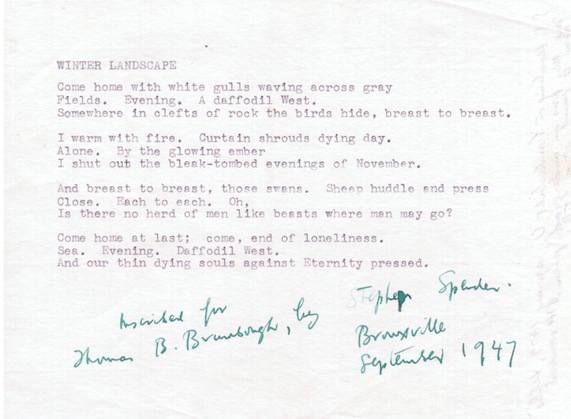 WINTER LANDSCAPE
Come home with white gulls waving across gray
Fields. Evening. A daffodil West.
Somewhere in clefts of rock the birds hide, breast to breast.
I warm with fire. Curtain shrouds dying day.
Alone. By the glowing ember
I shut out the bleak-tombed evenings of November.
And breast to breast, those swans. Sheep huddle and press
Close. Each to each. Oh,
Is there no herd of men like beasts where man may go?
Come home at last; come, end of loneliness.
Sea. Evening. Daffodil West.
And our thin dying souls against Eternity pressed.
Inscribed for
Thomas B. Brumbaugh, by
Stephen Spender.
Bronxville
September 1947